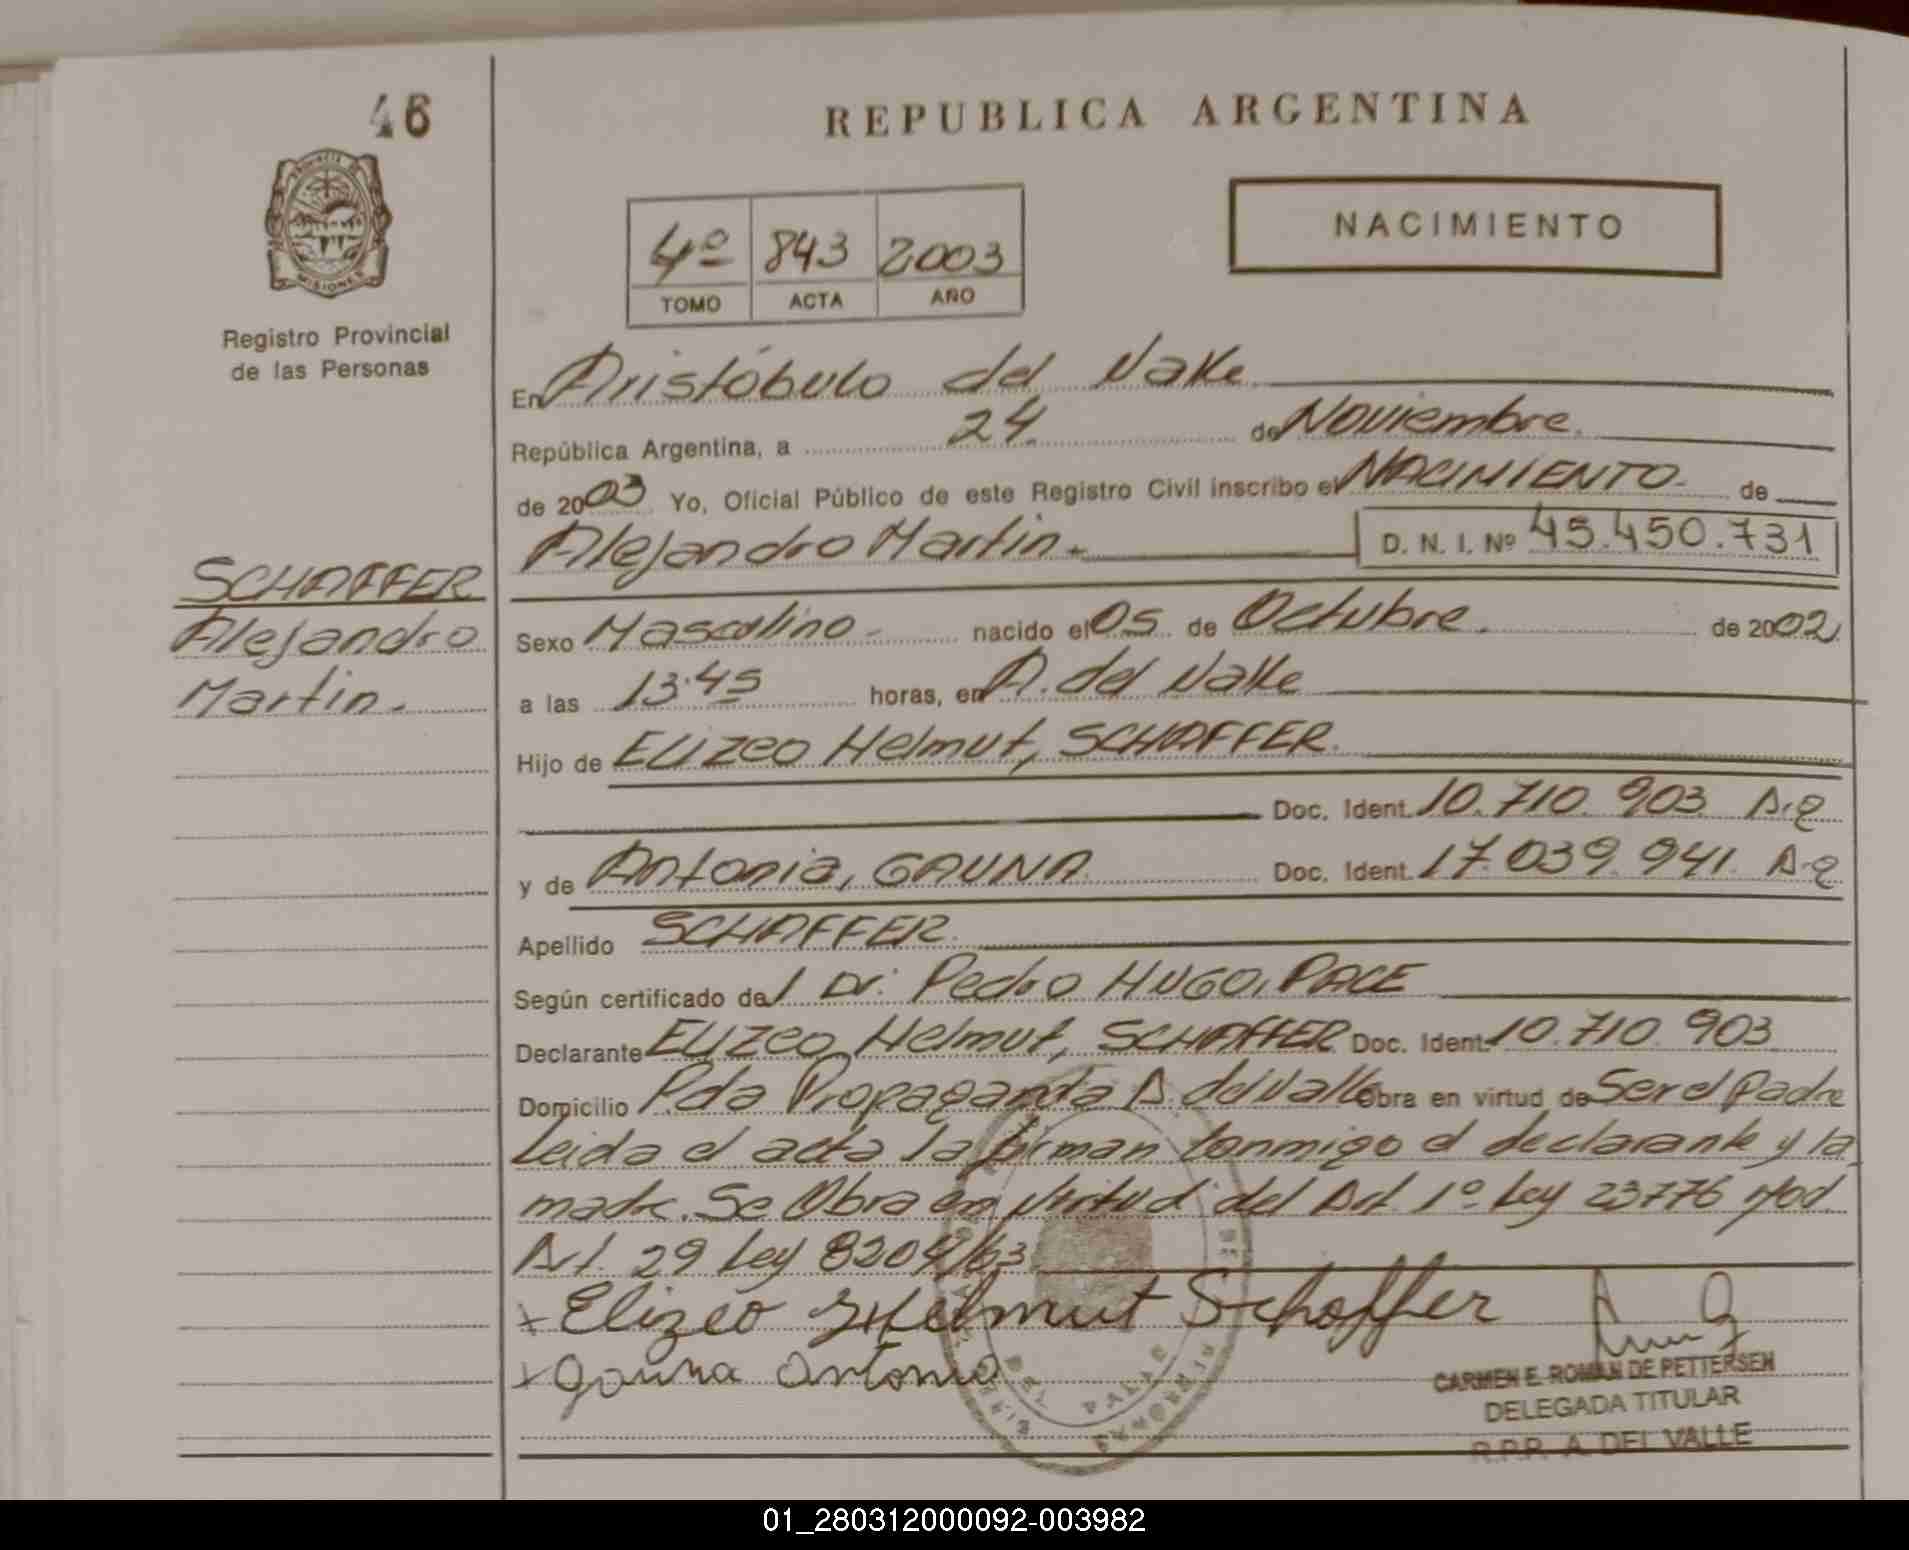 46
REPUBLICA ARGENTINA
NACIMIENTO
4º 843 2003
TOMO ACTA AÑO
Registro Provincial
de las Personas
En Aristóbulo del Valle
República Argentina, a 24 de Noviembre.
de 2003 Yo, Oficial Público de este Registro Civil inscribo el NACIMIENTO. de
Alejandro Martin. D. N. I. Nº 45.450.731
SCHAFFER
Alejandro
Martin.
Sexo Masculino nacido el 05 de Octubre. de 2002
a las 13:45 horas, en A. del Valle
Hijo de Elizeo Helmut, SCHAFFER.
Doc. Ident. 10.710.903
y de Antonia, GAUNA Doc. Ident. 17.039.941.
Apellido SCHAFFER.
Según certificado del Dr. Pedro HUGO, PACE
Declarante Elizeo Helmut, SCHAFFER Doc. Ident. 10.710.903
Domicilio Pda Propaganda A. del Valle Obra en virtud de Ser el Padre
Leida el acta la firman conmigo el declarante y la
madre. Se Obra en virtud del Art. 1º Ley 23776 Mod.
Art. 29 Ley 8204/63
x Elizeo Helmut Schaffer
x Gauna Antonia
CARMEN E. ROMAN DE PETTERSEN
DELEGADA TITULAR
R.P.P. A. DEL VALLE
01_280312000092-003982